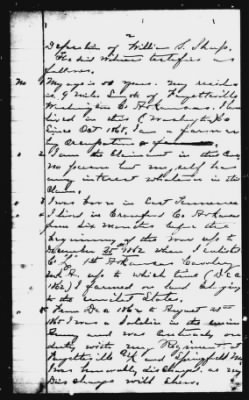 2
Deposition of William S. Sharp.
The said Witness testifies as
follows.
No 1 My age is years. My resid
is 9 miles South of Fayetteville
Washington Co Arkansas. I have
lived in this (Washington) Co
since Oct 1865, I am a farmer
by occupation
2 I am the Claimant in this Case
no person but my self has
any interest whatever in the
Claim.
3 I was born in East Tennessee
4 I lived in Crawford Co Arkan
from six months before the
beginning of the war up to
December 1862 when I enlisted
Co 1st Arkansas Cavalry
up to which time (Dec
1862) I farmed on land belonging
to the United States.
5 From Dec 1862 to August
1865 I was a Soldier in the union
Army and was on
duty with my Regiment
Fayetteville Ark and Springfield Mo
I was honorably discharged as my
Discharge will show.